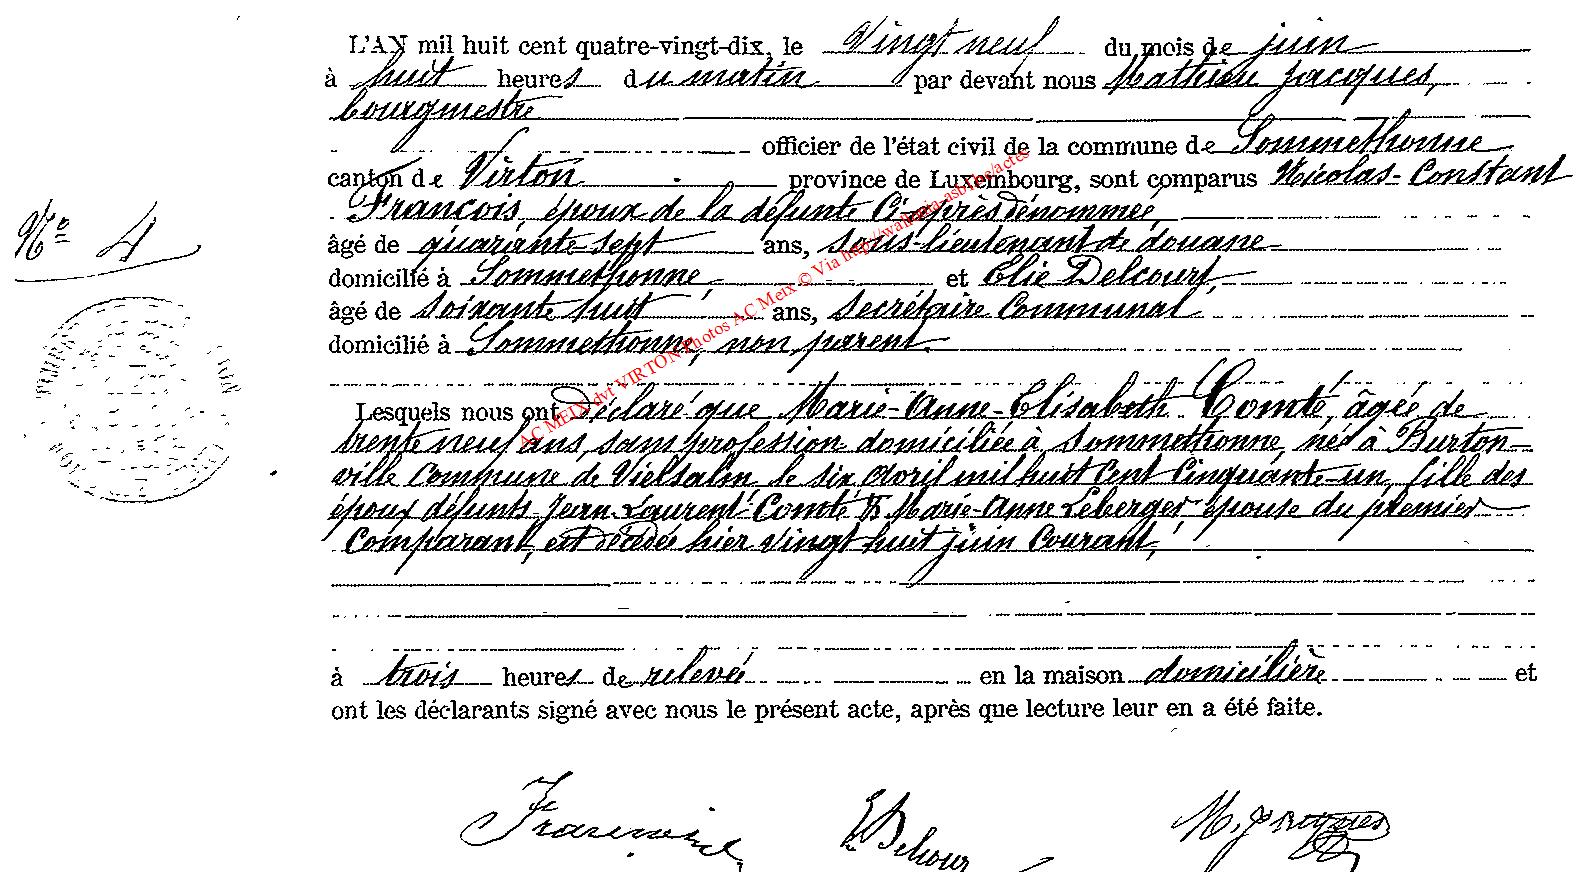 L'AN mil huit cent quatre-vingt-dix, le vingt neuf du mois de juin
à huit heures du matin par devant nous Mathieu Jacques,
bourgmestre
officier de l'état civil de la commune de Sommethonne
canton de Virton province de Luxembourg, sont comparus Nicolas-Constant
François, époux de la défunte ci-après dénommée,
âgé de quarante-sept ans, sous-lieutenant de douane
domicilié à Sommethonne, et Elie Delcourt,
N° 4
âgé de soixante huit ans, secrétaire communal
domicilié à Sommethonne, non parent.
AC MEIX dvt VIRTON Photos AC Meix © Via http://wallonia-asbl.be/actes
Lesquels nous ont déclaré que Marie-Anne-Elisabeth Comté, âgée de
trente neuf ans, sans profession domiciliée à Sommethonne, née à Burton-
ville commune de Vielsalm le six avril mil huit cent cinquante-un, fille des
époux défunts Jean Laurent Comté & Marie-Anne Leberger épouse du premier
comparant, est décédée hier vingt huit juin courant,
à trois heures de relevée en la maison domicilière et
ont les déclarants signé avec nous le présent acte, après que lecture leur en a été faite.
M. Jacques